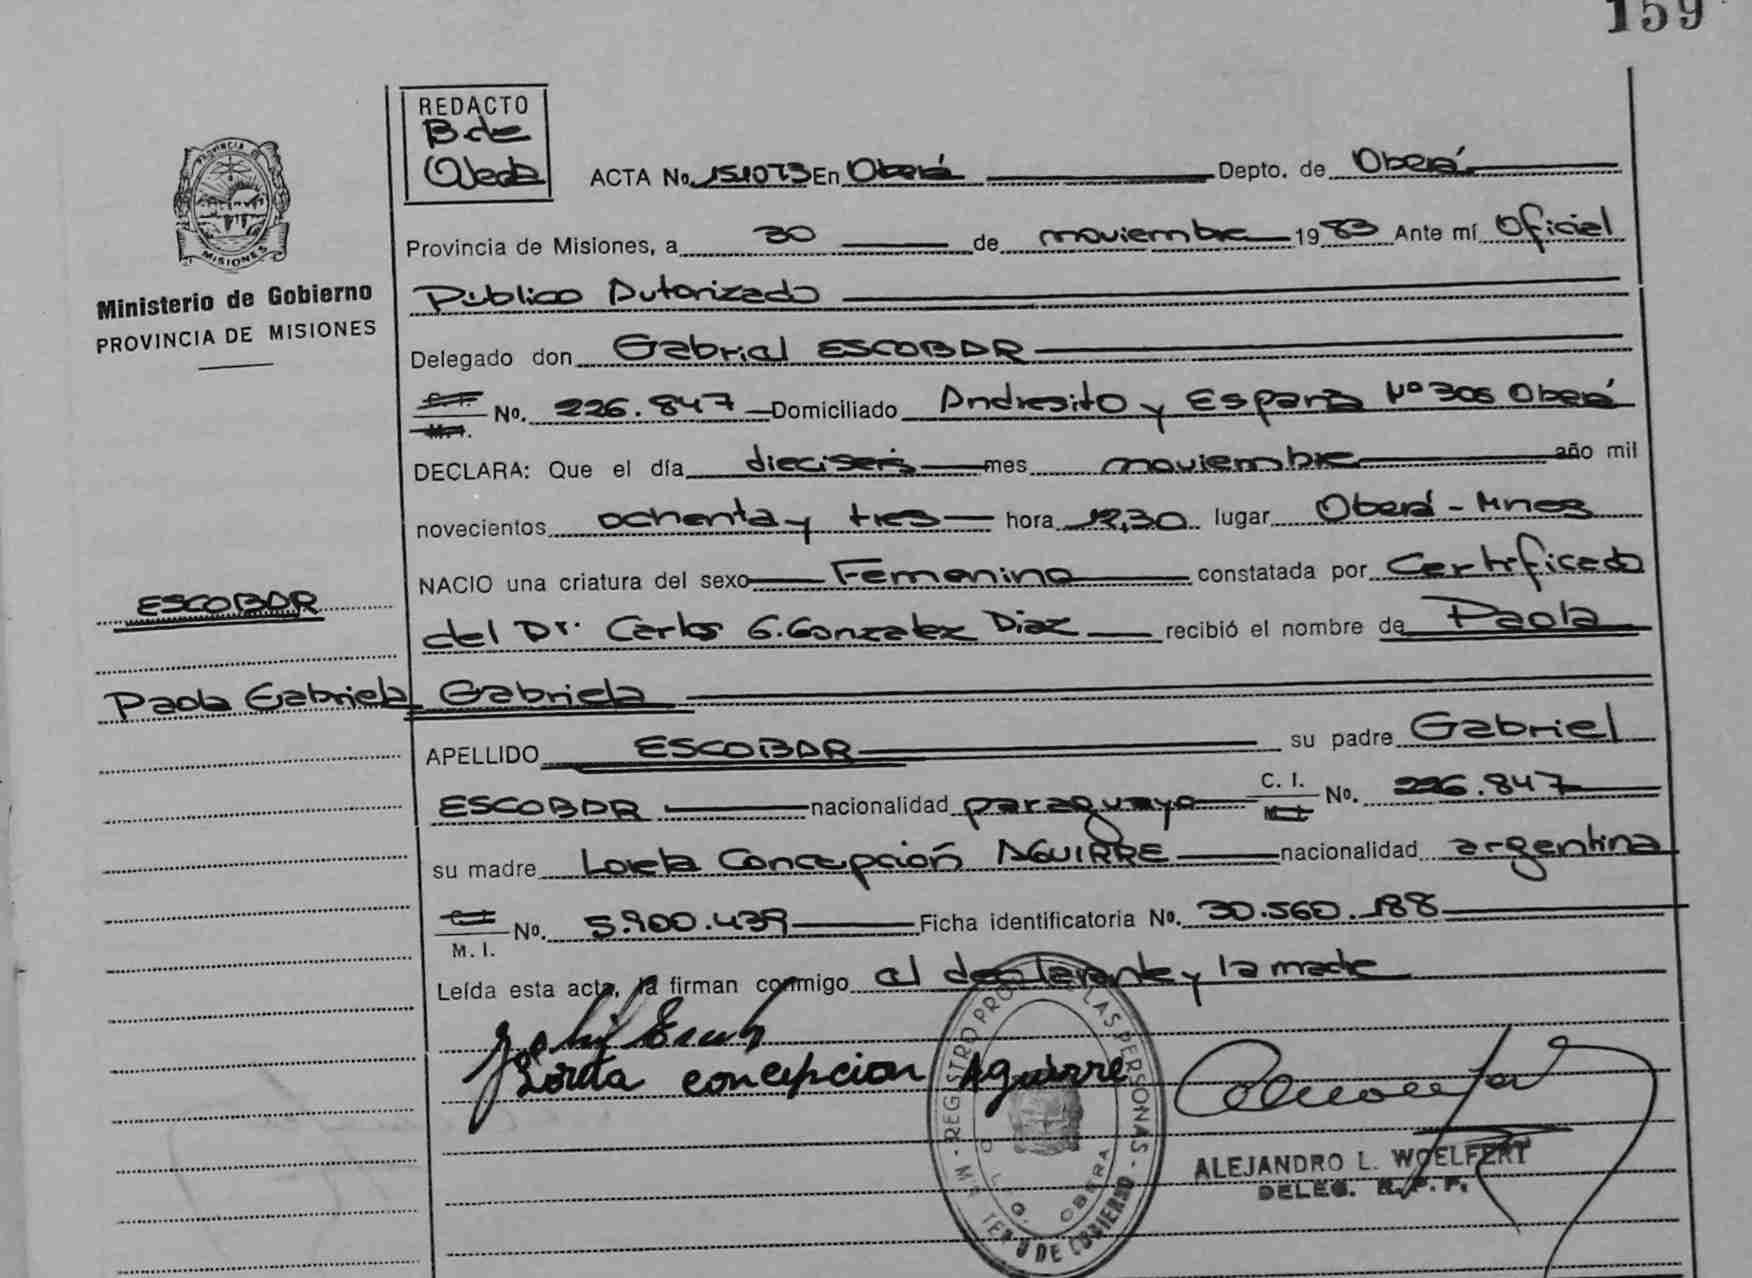 159
REDACTO
B. de
Ojeda
ACTA No. 151073 En Oberá Depto. de Oberá
PROVINCIA DE
MISIONES
Provincia de Misiones, a 30 de noviembre 1983 Ante mí Oficial
Ministerio de Gobierno
PROVINCIA DE MISIONES
Público Autorizado
Delegado don Gabriel ESCOBAR
C.I. No. 226.847 Domiciliado Andresito y España Nº 306 Oberá
M.I.
DECLARA: Que el día dieciseis mes noviembre año mil
novecientos ochenta y tres hora 12,30 lugar Oberá - Mnes
NACIO una criatura del sexo Femenino constatada por Certificado
ESCOBAR
del Dr. Carlos G. Gonzalez Diaz recibió el nombre de Paola
Paola Gabriela Gabriela
APELLIDO ESCOBAR su padre Gabriel
ESCOBAR nacionalidad paraguaya C. I. No. 226.847
M.I.
su madre Loreta Concepción AGUIRRE nacionalidad argentina
C.I. No. 5.900.439 Ficha identificatoria No. 30.560.188
M. I.
Leída esta acta, la firman conmigo el declarante y la madre
Loreta concepcion Aguirre
REGISTRO PROV. DE LAS PERSONAS
OBERA
MINISTERIO DE GOBIERNO
ALEJANDRO L. WOELFERT
DELEG. R. P. P.